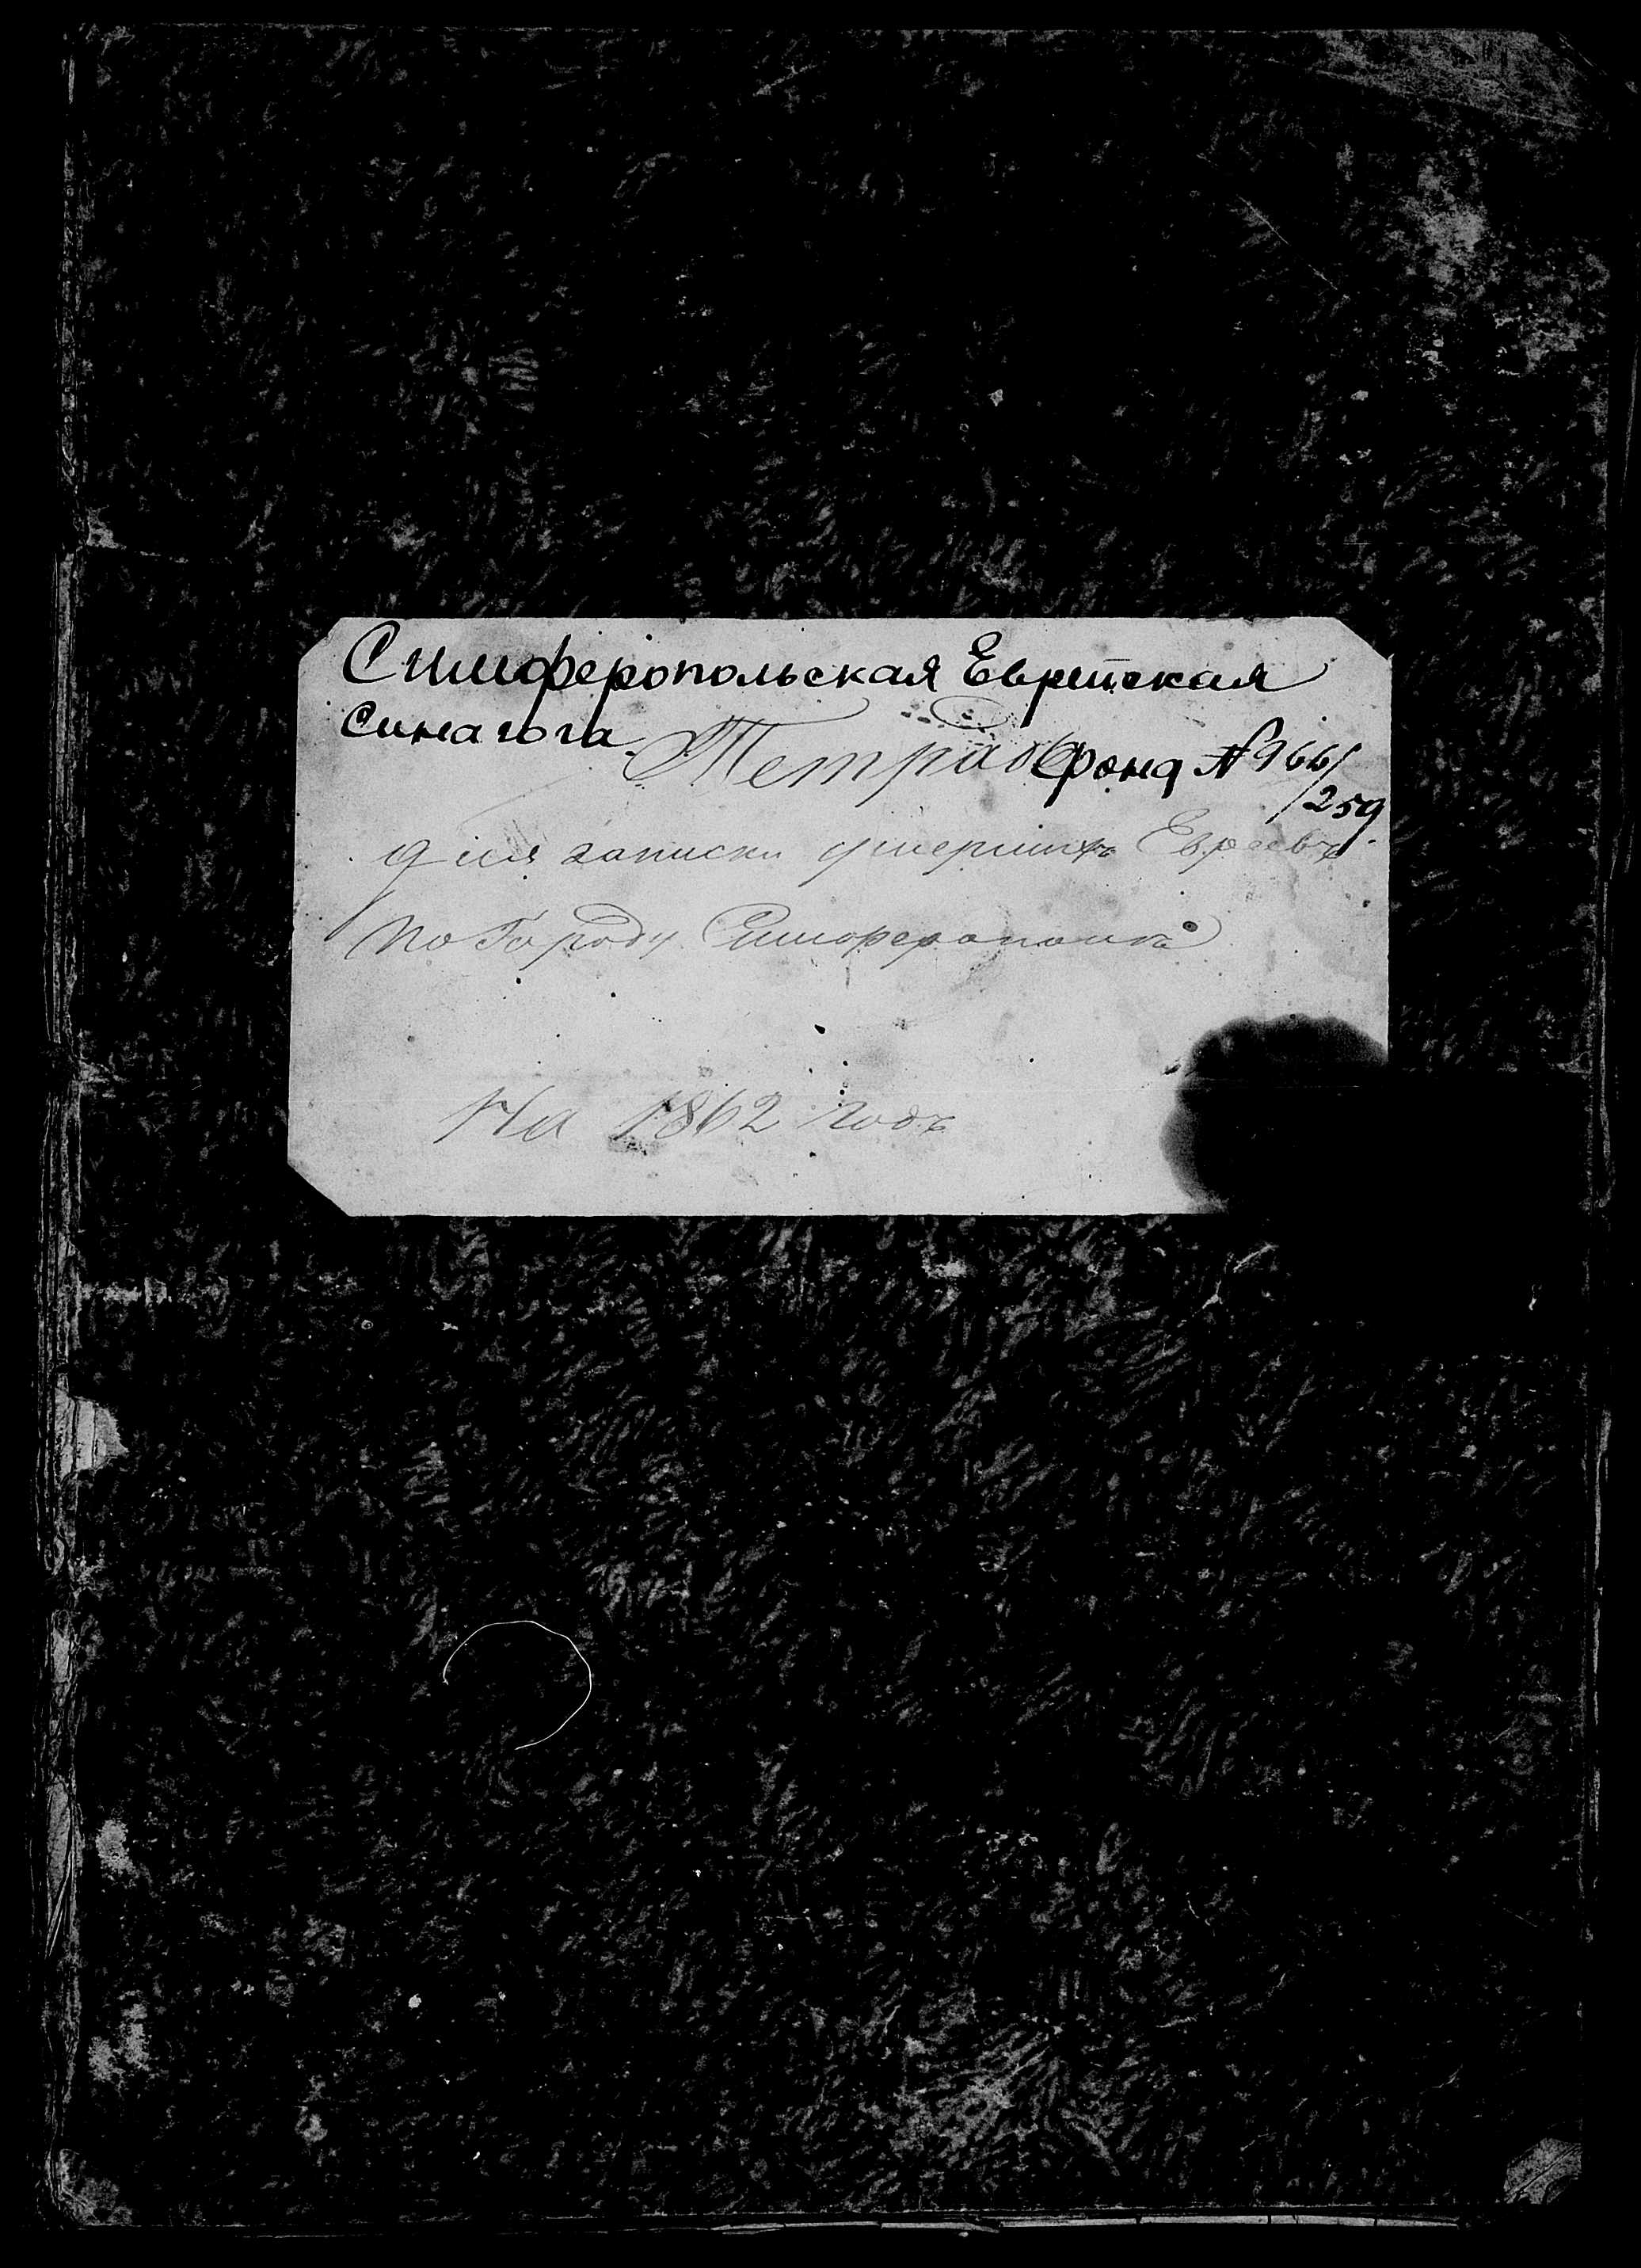 Симферопольская Еврейская
синагога
Тетрадь Фонд № 966/
/259
для записки умершихъ Евреевъ
по Городу Симферополю
На 1862 годъ